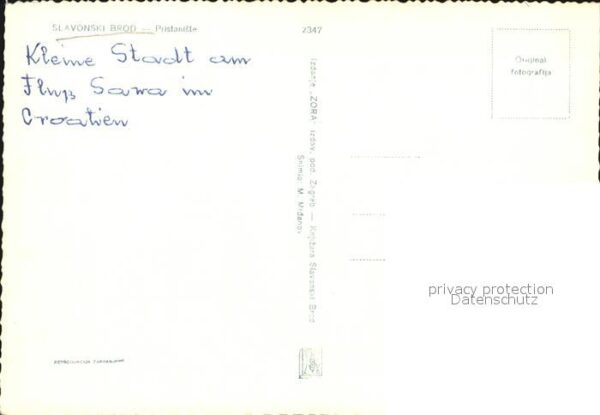 SLAVONSKI BROD — Pristanište
2347
Kleine Stadt am
Fluß Sawa im
Croatien
Izdanje „ZORA" izdav. pod. Zagreb — Knjižara Slavonski Brod
Snimio: M. Mrđenov
Original
fotografija
privacy protection
Datenschutz
REPRODUKCIJA ZABRANJENA